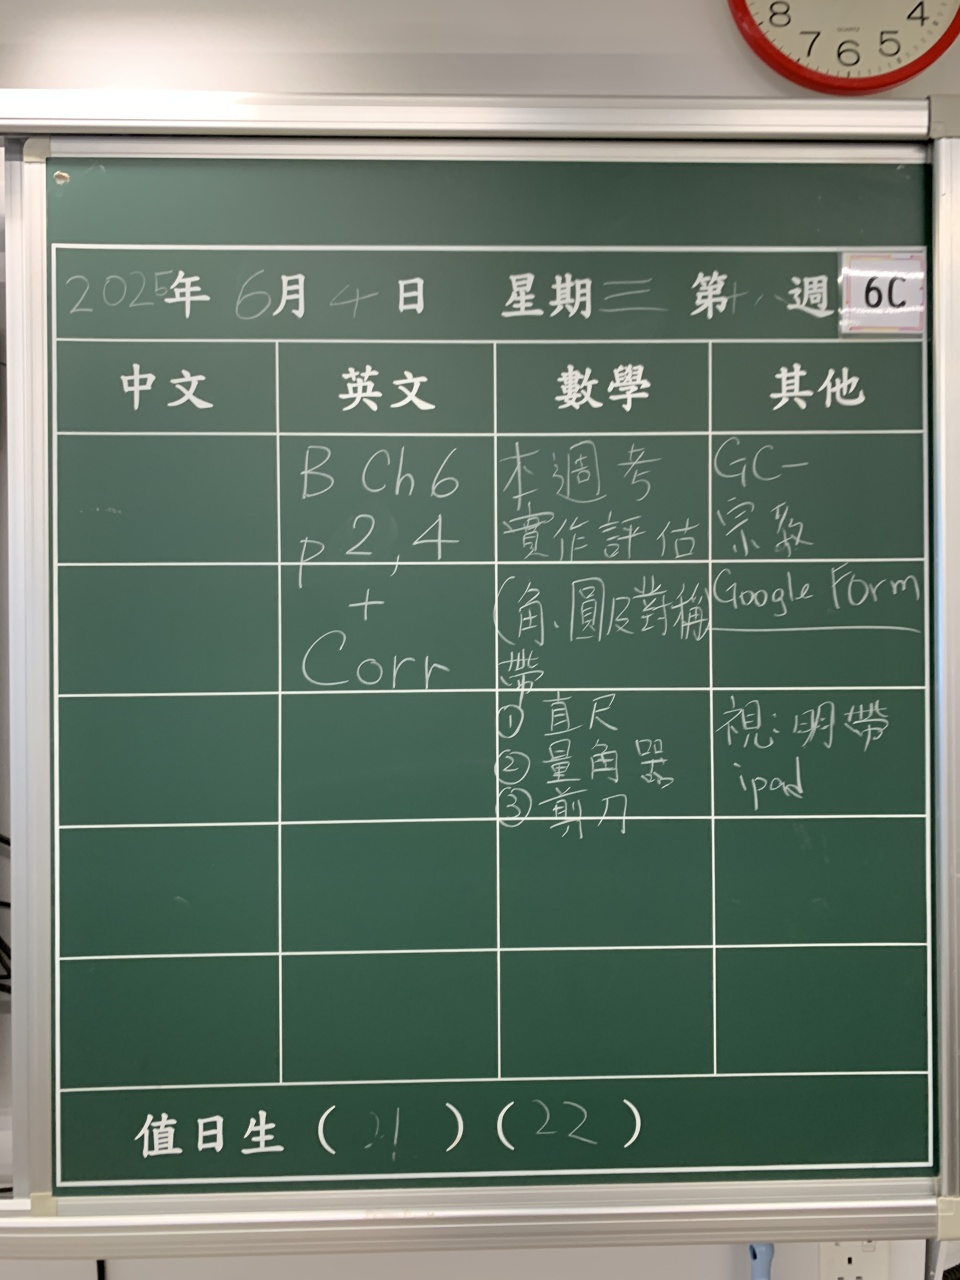 8 7 6 5 4
2025年 6月 4日 星期三 第十八週 6C
中文 英文 數學 其他
B Ch 6
p 2, 4
+
Corr
本週考
實作評估
(角、圓及對稱)
帶
① 直尺
② 量角器
③ 剪刀
GC-
宗教
Google Form
視：明帶
ipad
值日生 ( 21 ) ( 22 )